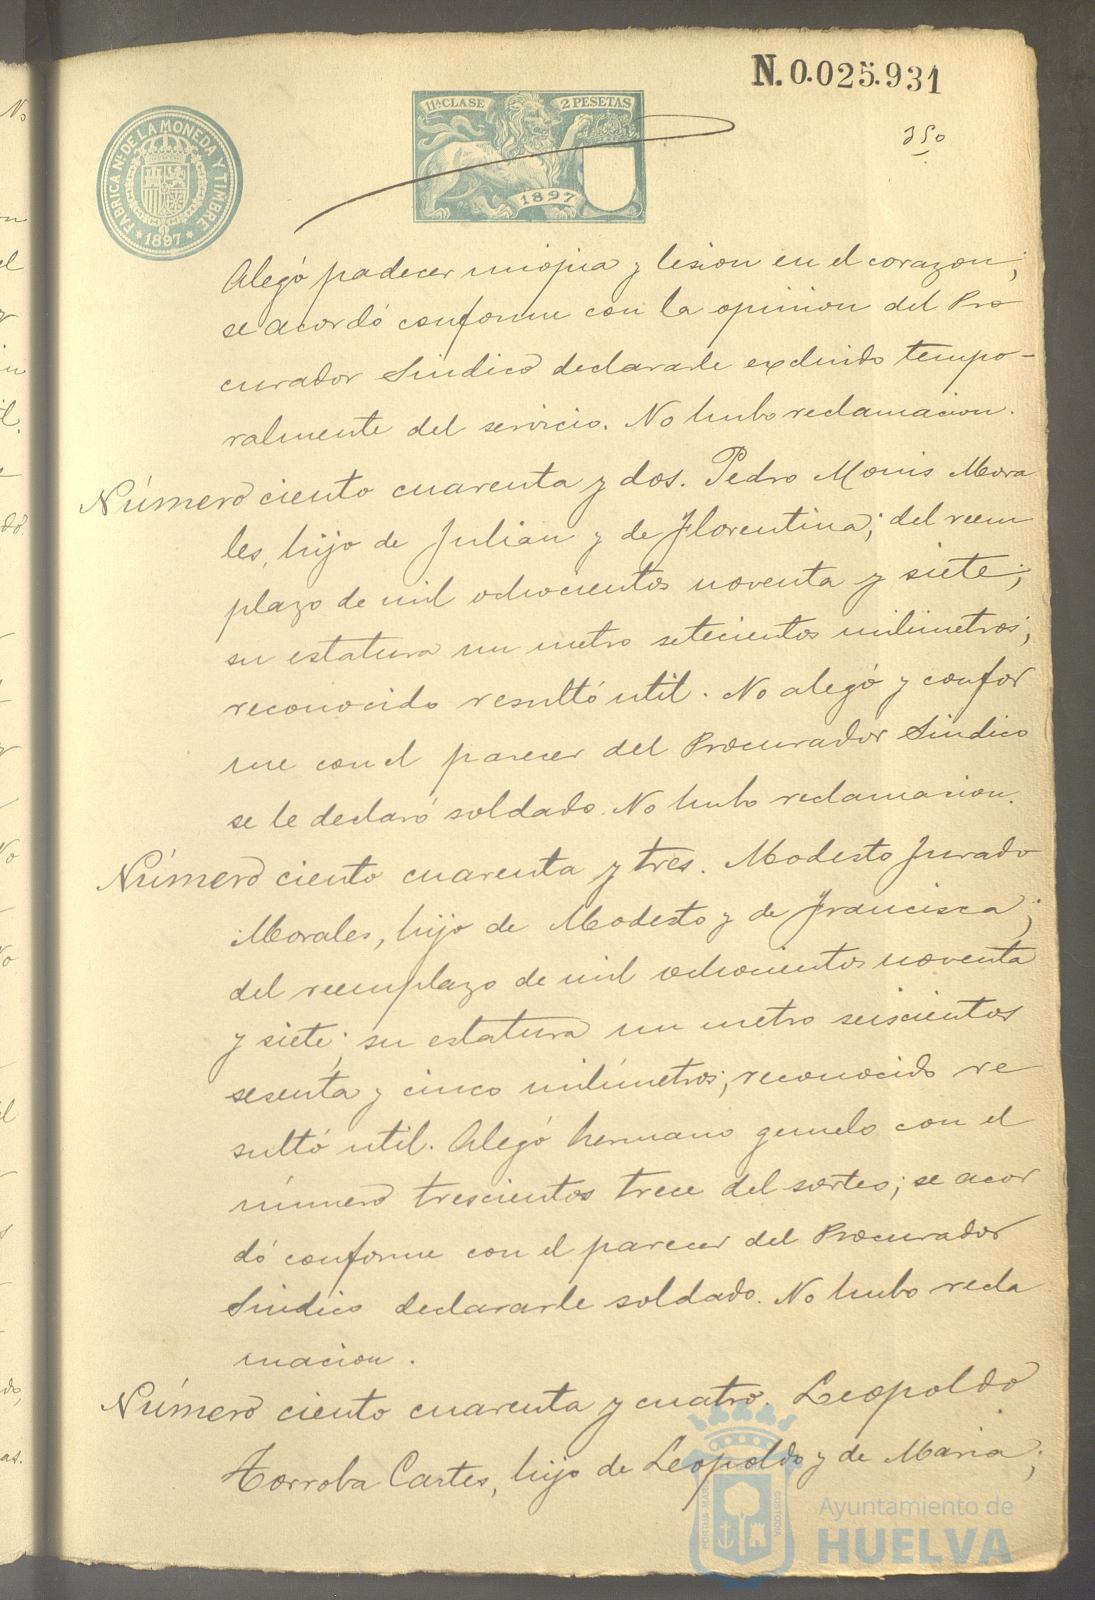 N. 0.025.931
350
FABRICA NL. DE LA MONEDA Y TIMBRE
* 1897 *
11ª CLASE 2 PESETAS
1897
Alegó padecer miopia y lesion en el corazon;
se acordó conforme con la opinion del Pro
curador Sindico declararle excluido tempo-
ralmente del servicio. No hubo reclamacion.
Número ciento cuarenta y dos. Pedro Monis Mora
les, hijo de Julian y de Florentina; del reem
plazo de mil ochocientos noventa y siete;
su estatura un metro setecientos milimetros;
reconocido resultó util. No alegó y confor
me con el parecer del Procurador Sindico
se le declaró soldado. No hubo reclamacion.
Número ciento cuarenta y tres. Modesto Jurado
Morales, hijo de Modesto y de Francisca;
del reemplazo de mil ochocientos noventa
y siete; su estatura un metro seiscientos
sesenta y cinco milimetros; reconocido re
sultó util. Alegó hermano gemelo con el
número trescientos trece del sorteo; se acor
dó conforme con el parecer del Procurador
Sindico declararle soldado. No hubo recla
macion.
Número ciento cuarenta y cuatro. Leopoldo
Torroba Cartes, hijo de Leopoldo y de Maria;
PORTUS MARIS CUSTODIA
Ayuntamiento de
HUELVA